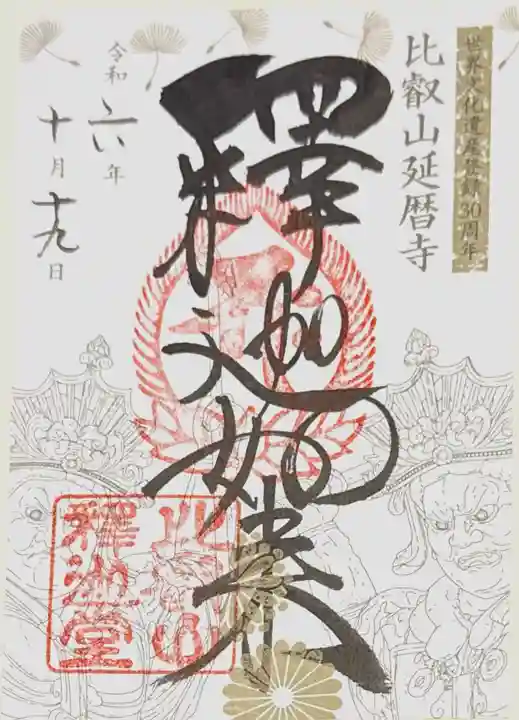 世界文化遺産登録30周年
比叡山延暦寺
釋迦如来
令和六年
十月十九日
比叡山
釋迦堂